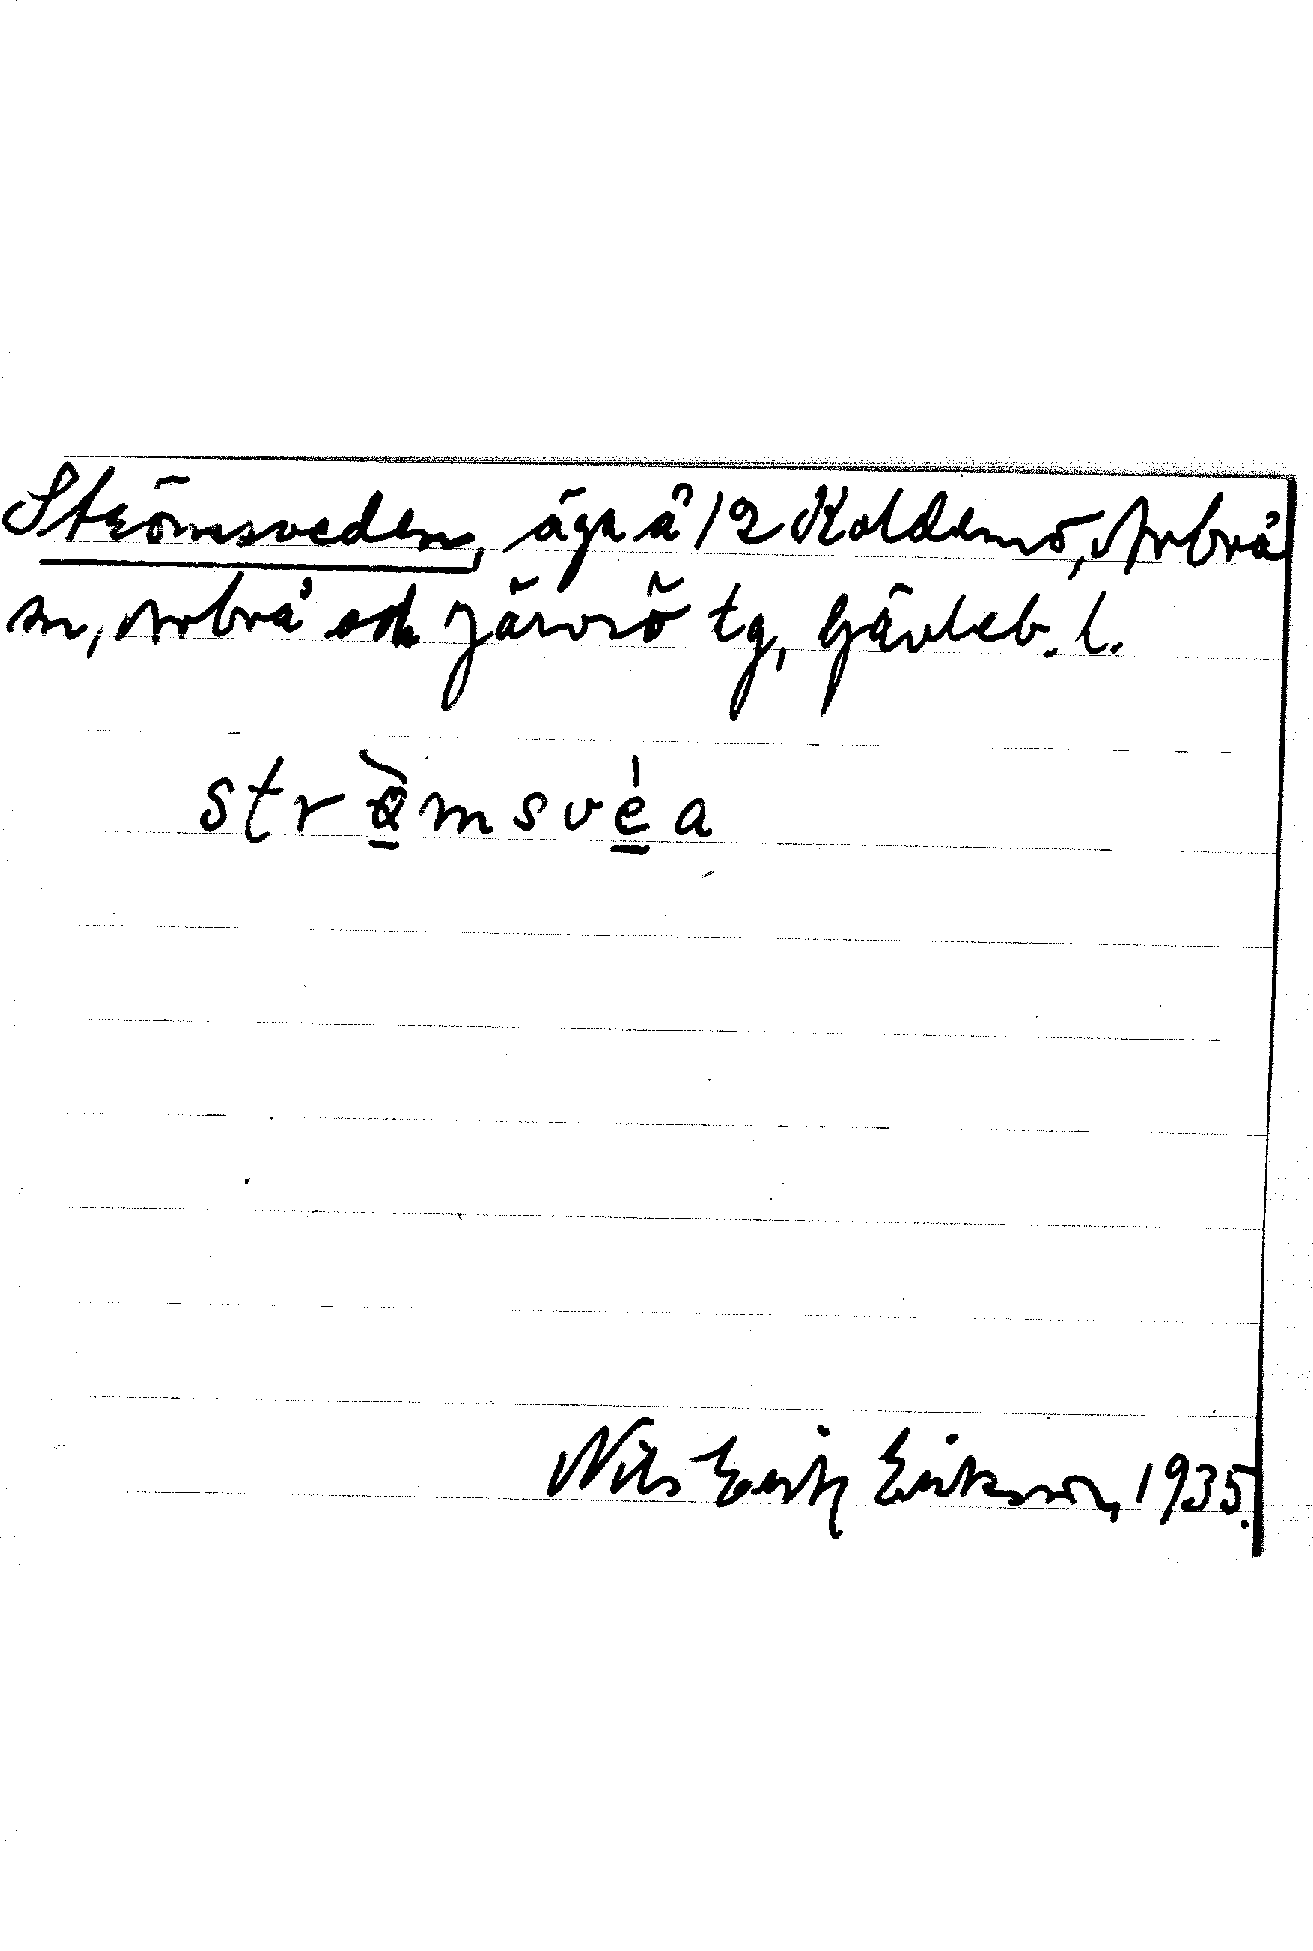 Strömsveden, äga å 12 Koldemo, Arbrå
sn, Arbrå och Järvsö tg, Gävleb. l.
str<u>ö̀</u>msv<u>é</u>a
Nils Erik Eriksson, 1935.